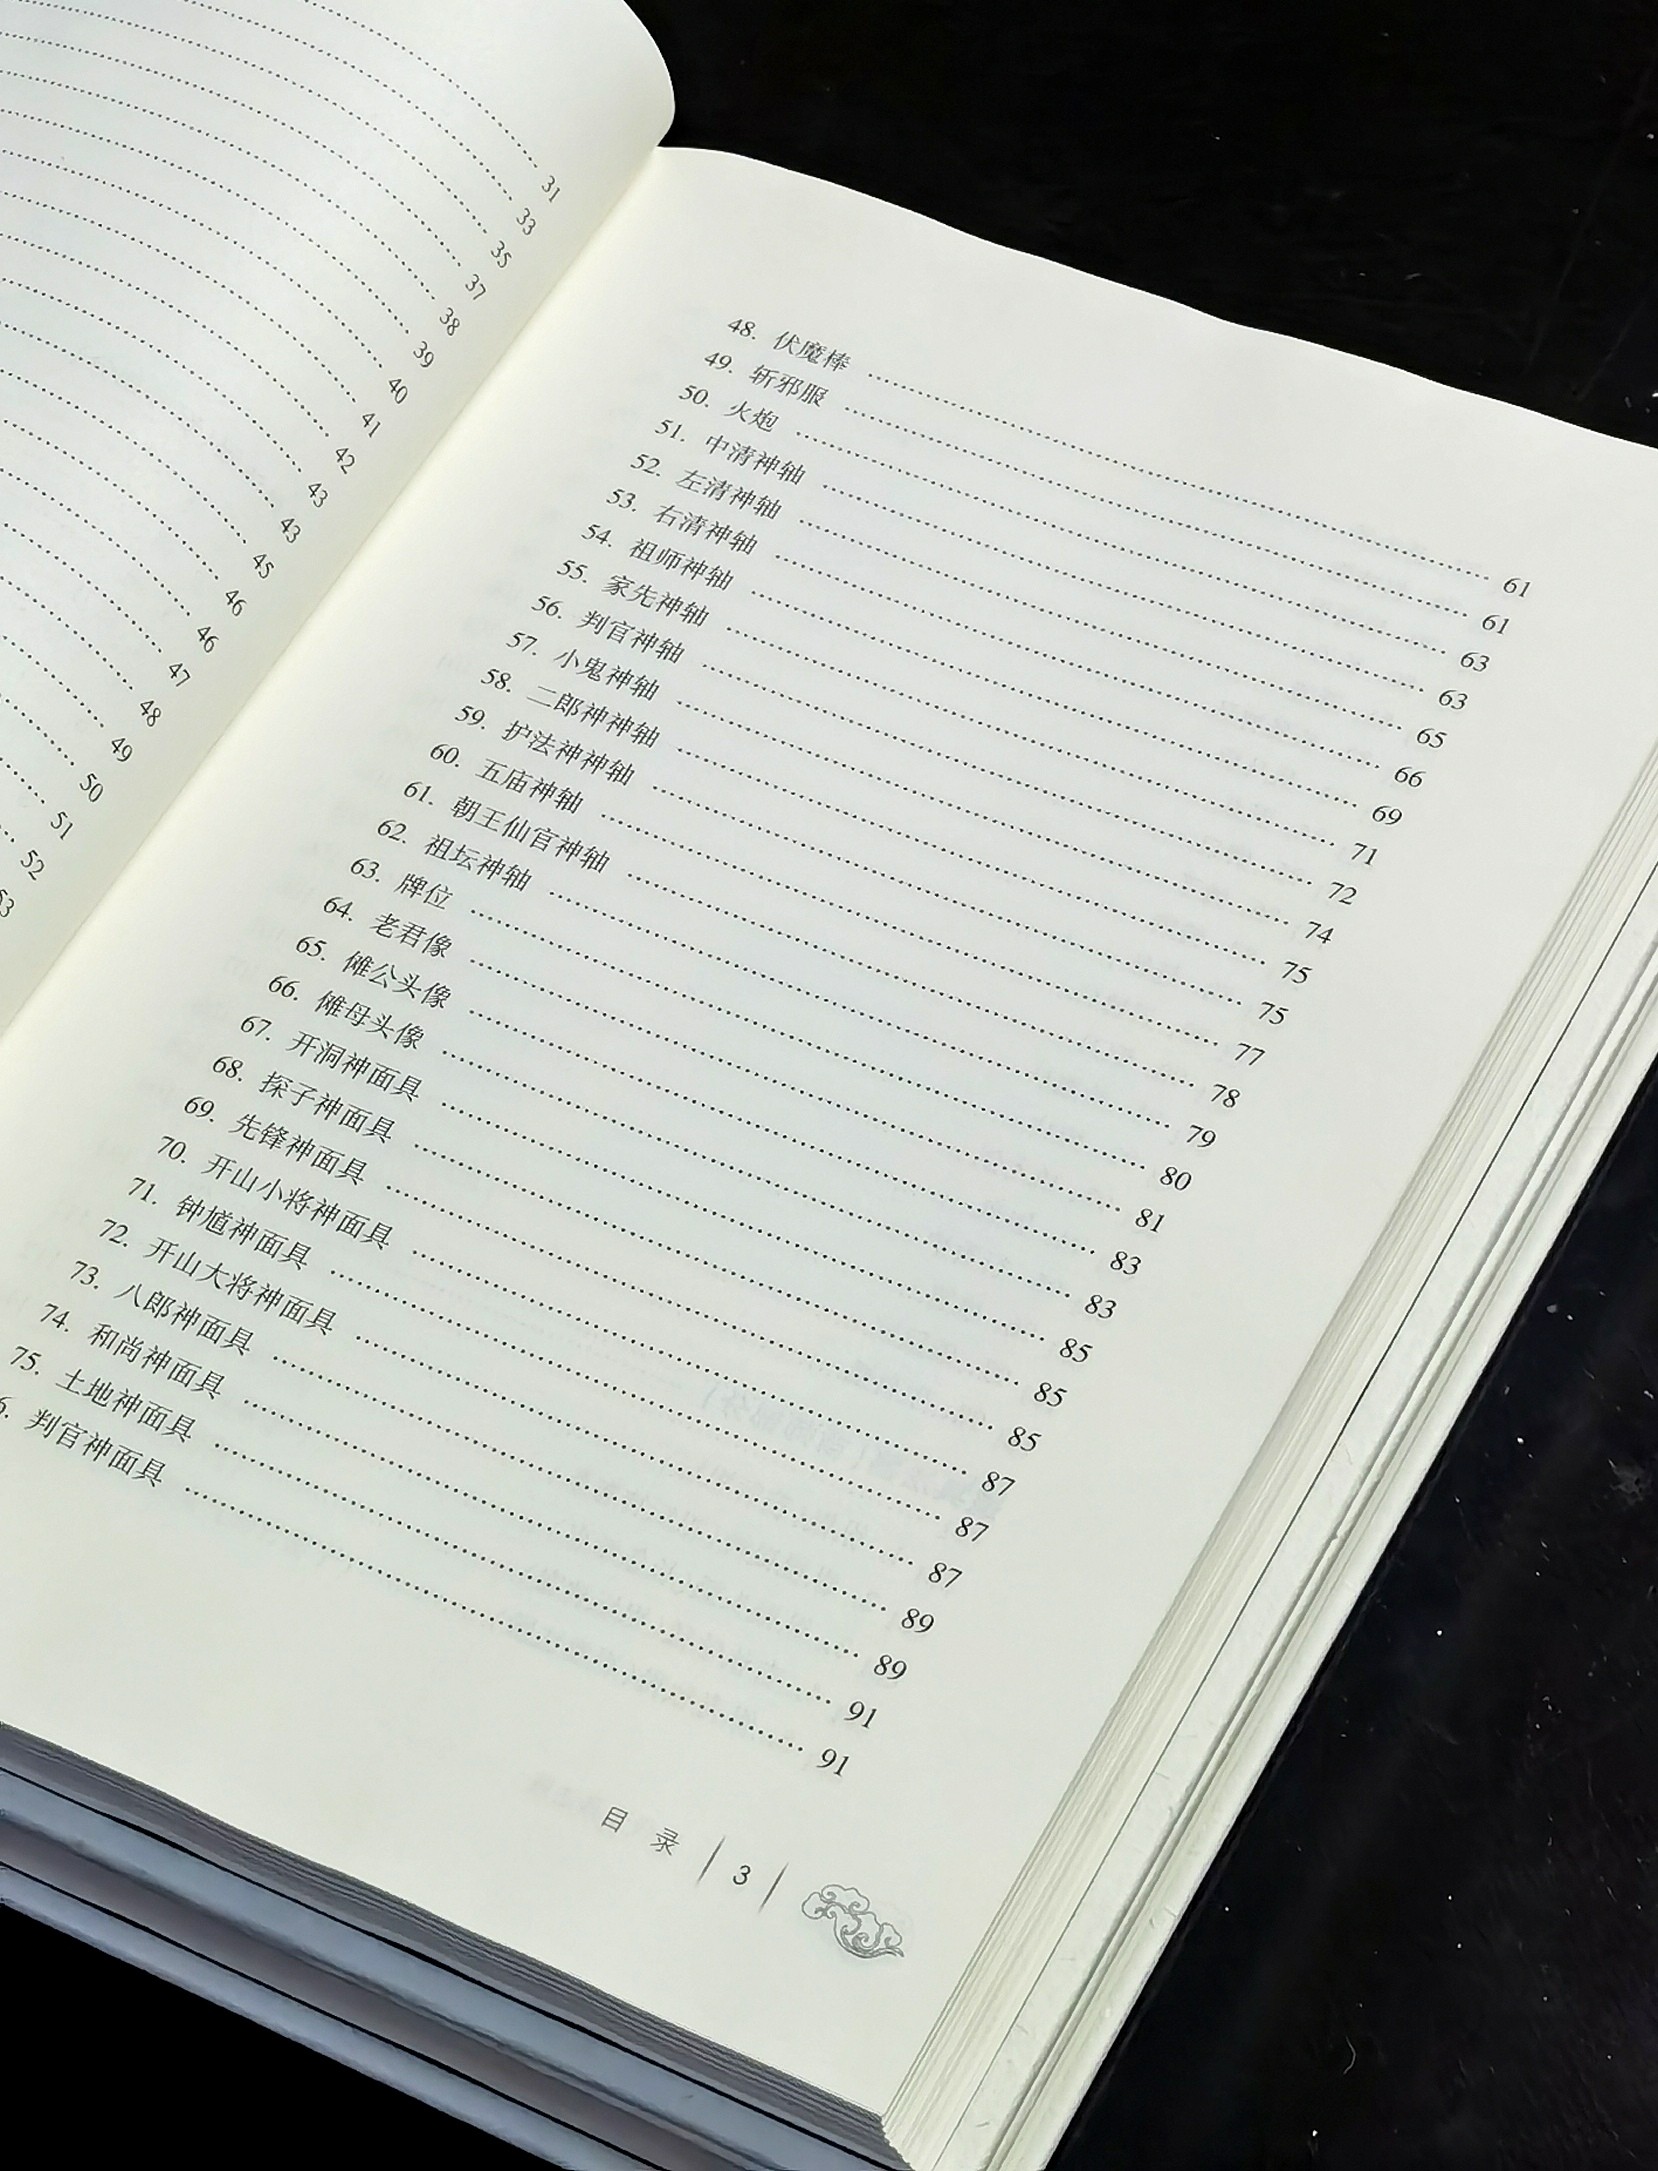 31
33
35
37
38
39
40
41
42
43
43
45
46
46
47
48
49
50
51
52
53
48. 伏魔棒 …… 61
49. 斩邪服 …… 61
50. 火炮 …… 63
51. 中清神轴 …… 63
52. 左清神轴 …… 65
53. 右清神轴 …… 66
54. 祖师神轴 …… 69
55. 家先神轴 …… 71
56. 判官神轴 …… 72
57. 小鬼神轴 …… 74
58. 二郎神神轴 …… 75
59. 护法神神轴 …… 75
60. 五庙神轴 …… 77
61. 朝王仙官神轴 …… 78
62. 祖坛神轴 …… 79
63. 牌位 …… 80
64. 老君像 …… 81
65. 傩公头像 …… 83
66. 傩母头像 …… 83
67. 开洞神面具 …… 85
68. 探子神面具 …… 85
69. 先锋神面具 …… 85
70. 开山小将神面具 …… 87
71. 钟馗神面具 …… 87
72. 开山大将神面具 …… 87
73. 八郎神面具 …… 89
74. 和尚神面具 …… 89
75. 土地神面具 …… 91
6. 判官神面具 …… 91
目 录 | 3 |